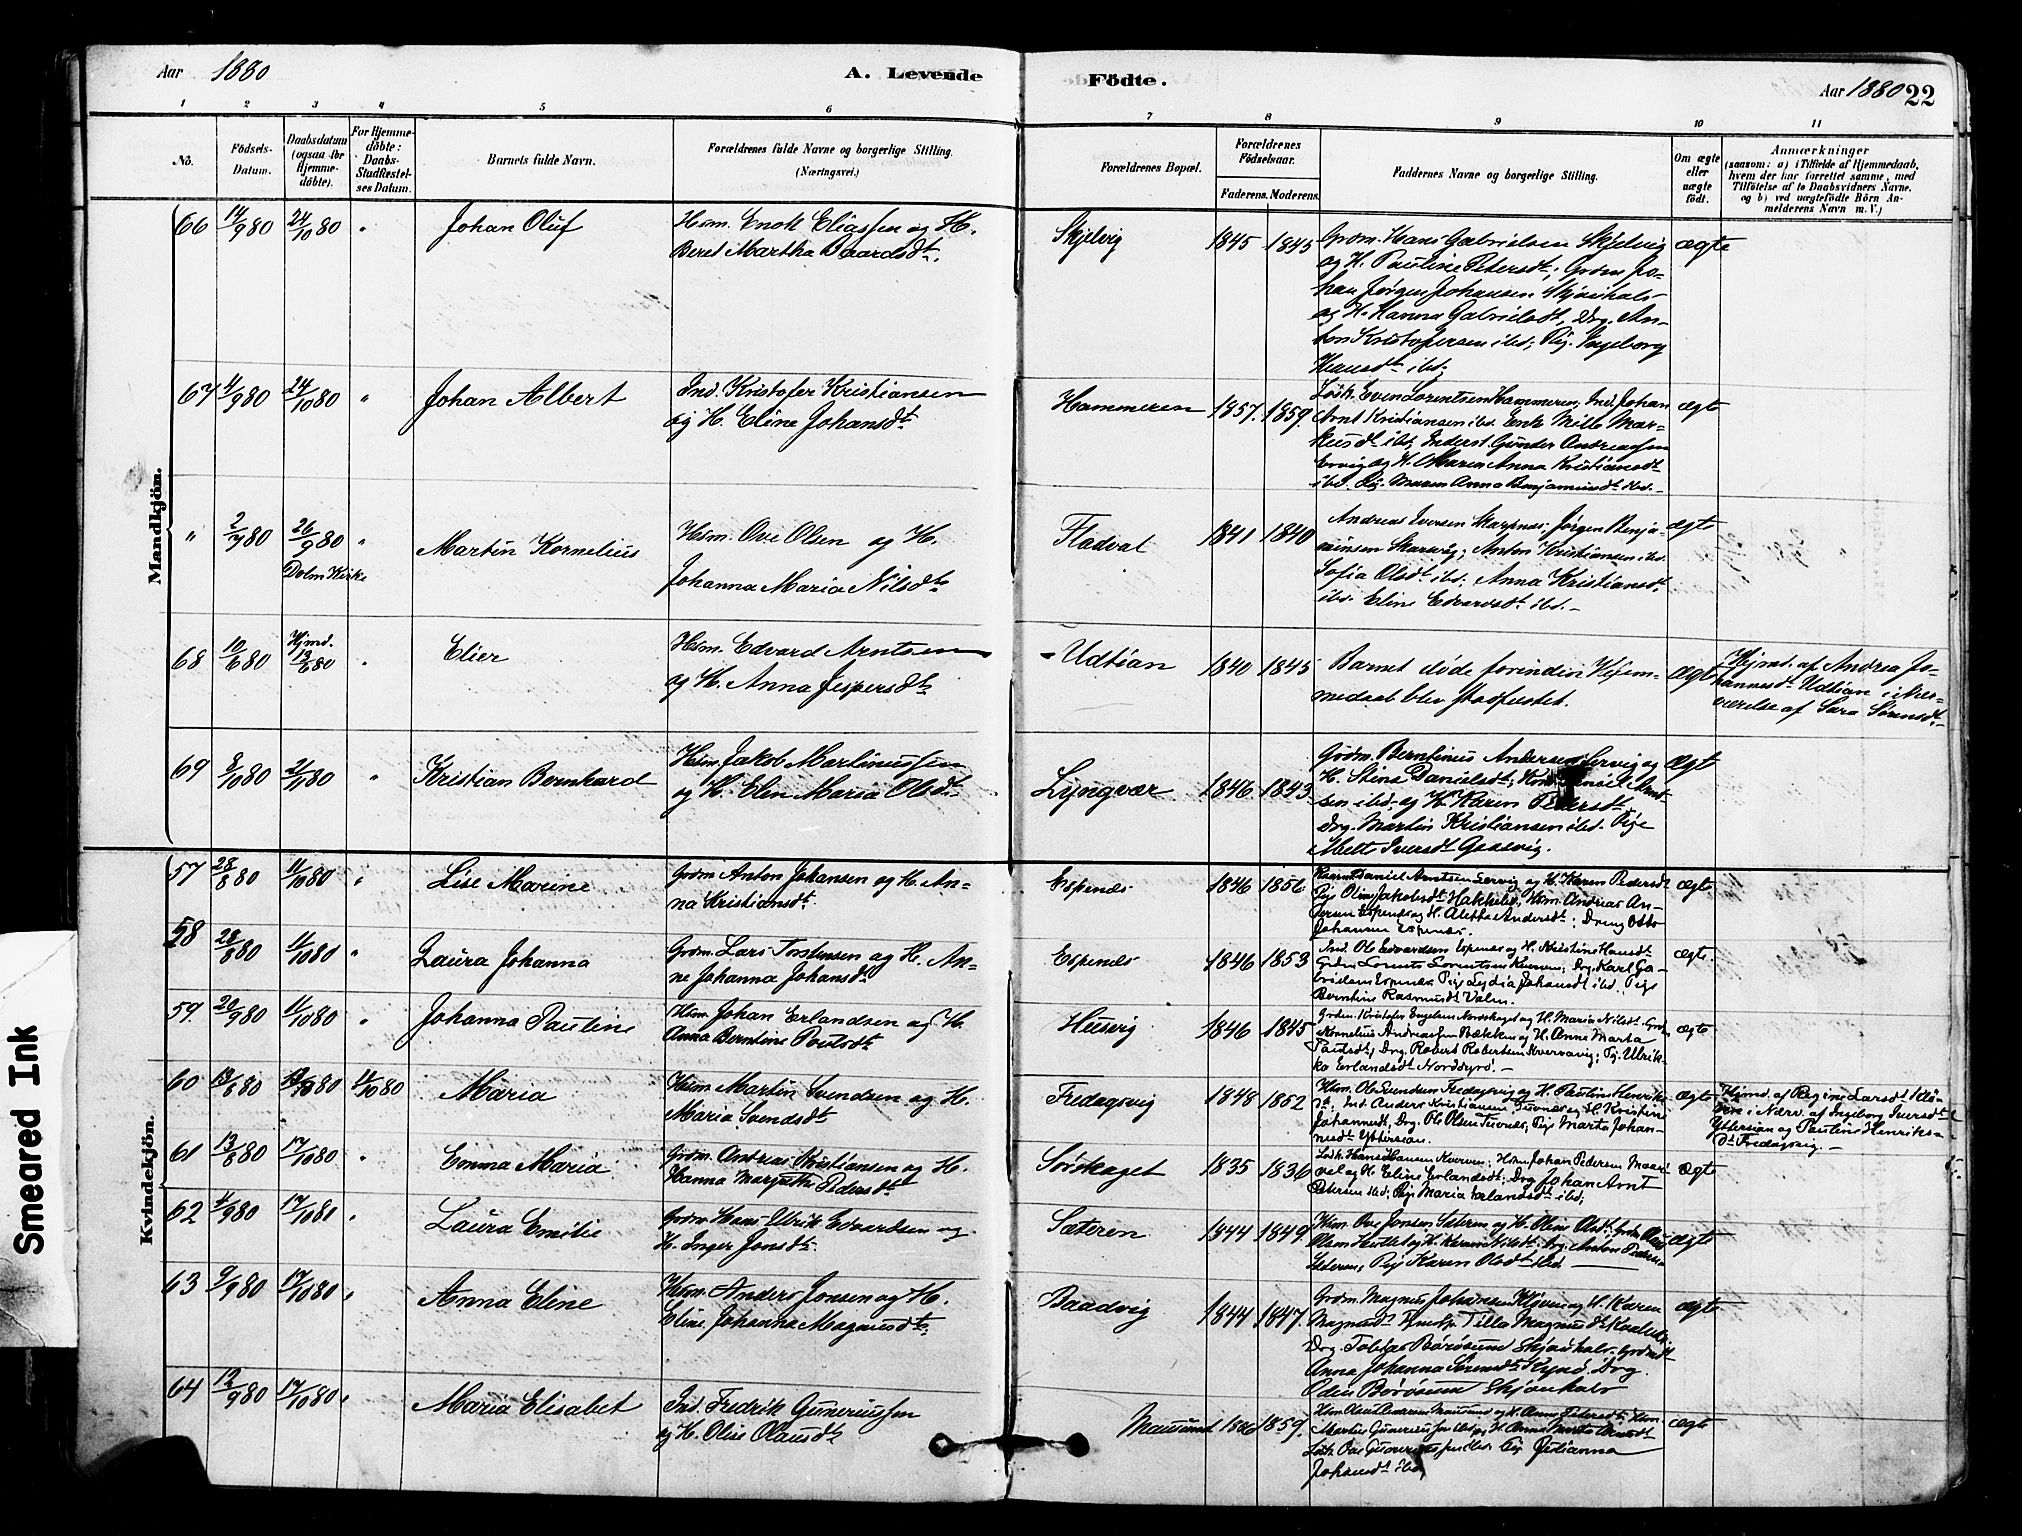 Aar 1880
A. Levende
Födte.
Aar 1880 22
1 2 3 4 5 6 7 8 9 10 11
Nö.
Födsels-
Datum.
Daabsdatum
(ogsaa for
Hjemme-
döbte).
For Hjemme-
döbte:
Daabs-
Stadfæstel-
ses Datum.
Barnets fulde Navn.
Forældrenes fulde Navne og borgerlige Stilling.
(Næringsvei.)
Forældrenes Bopæl.
Forældrenes
Födselsaar.
Faderens. Moderens.
Faddernes Navne og borgerlige Stilling.
Om ægte
eller
uægte
födt.
Anmærkninger
(saasom: a) i Tilfælde af Hjemmedaab,
hvem der har forrettet samme, med
Tilföielse af to Daabsvidners Navne,
og b) ved uægtefödte Börn An-
melderens Navn m. V.)
Mandkjön.
66 14/9 80 24/10 80 " Johan Oluf
Hsm. Enok Eliassen og H.
Beret Martha Baardsdt.
Skjelvig 1845 1845
Grdm. Hans Gabrielsen Skjelvig
og H. Pauline Petersdt; Grdm Jo-
han Jørgen Johansen Skjavhals
og H. Hanna Gabrielsdt, Drg. An-
ton Kristofersen ibd; Pig. Ingeborg
Hansdt ibd;
ægte
67 4/9 80 24/10 80 " Johan Albert
Ind. Kristofer Kristiansen
og H. Eline Johansdt
Hammeren 1857. 1859.
Løsk. Even Lorentsen Hammeren; Ind. Johan
Arnt Kristiansen ibd. Enke Mille Mar-
kusdt ibd; Inderst Gunder Andreassen
Ervig og H. Maren Anna Kristiansdt
ibd. Pig. Maren Anna Benjaminsdt ibd.
ægte
" 2/7 80 26/9 80 " Martin Kornelius
Dolm Kirke
Hsm. Ove Olsen og H.
Johanna Maria Nilsdt
Fladval 1841 1840
Andreas Iversen Skarpnes; Jørgen Benja-
minsen Skarsvåg; Anton Kristiansen ibd.
Sofia Olsdt ibd; Anna Kristiansdt
ibd. Eline Edvardsdt ibd.
ægte
68 10/6 80 Hjmd. 13/6 80 " Elier
Hsm. Edvard Arntsen
og H. Anna Jespersdt
Udtian 1840 1845
Barnet døde forinden Hjem-
medaab blev stadfæstet.
ægte
Hjmd. af Andrea Jo-
hannesdt Udtian i Nær-
værelse af Sara Sørensdt.
69 8/10 80 21/11 80 " Kristian Bernhard
Hsm. Jakob Martinussen
og H. Elen Maria Olsdt.
Lyngvær 1846 1843
Grdm. Berntinus Andersen Lervig og
H. Stina Danielsdt; Daniel Arnt-
sen ibd. og H. Karen Pedersdt
Drg. Martin Kristiansen ibd. Pige
Mette Iversdt
Ægt
Kvindekjön.
57 28/8 80 11/10 80 " Lise Marine
Grdm Anton Johansen og H. An-
na Kristiansdt.
Espenæs 1846 1856
Daniel Arntsen Lervig og H. Karen Pedersdt
Pige Oline Jakobsdt Hakkelen; Hsm. Andreas An-
dersen Espenæs og H. Aletha Andersdt; Dreng Otto
Johansen Espenæs.
ægte
58 28/8 80 11/10 80 " Laura Johanna
Grdm. Lars Torstensen og H. An-
ne Johanna Johansdt
Espenæs 1846 1853
Ind. Ole Edvardsen Espenæs og H. Kristine Hansdt
Grdm Lorents Lorentsen Kverven; Drg. Karl Ga-
brielsen Espenæs Pige Lydia Johansdt ibd. Pige
Berntine Rasmusdt Valen.
ægte.
59. 20/9 80 11/10 80 " Johanna Pauline
Hsm. Johan Erlandsen og H.
Anna Berntine Poulsdt
Husvig 1846 1845
Grdm. Kristofer Engelsen Nordskaget og H. Maria Nilsdt Grd.
Kornelius Andreassen Bekken og H. Anne Marta
Paulsdt, Drg. Robert Robertsen Kvervavig; Pg. Ulrik-
ke Erlandsdt Norddyrø.
ægte
60 13/8 80 13/8 80 11/10 80 Maria
Hsm. Martin Svendsen og H.
Maria Svendsdt
Fredagsvig 1848 1852
Hsm. Ole Svendsen Fredagsvig og H. Pauline Henriks-
dt, Ind. Anders Kristiansen Tuvnæs og H. Kristine
Johannesdt, Drg. Ole Olsen Tuvnæs; Pige Marta Johan-
nesdt Yttersian.
ægte
Hjmd. af Regine Larsdt
i Nærv. af Ingeborg Iversdt
Yttersian og Pauline Henriks-
dt Fredagsvig.
61 13/8 80 17/10 80 " Emma Maria
Grdm. Andreas Kristiansen og H.
Hanna Margrethe Pedersdt
Sørskaget 1835 1836
Lodk. Hans Hansen Kverven; Hsm. Johan Pedersen
og H. Eline Erlandsdt; Drg Johan Arnt
Petersen ibd; Pige Maria Erlandsdt ibd;
Ægte
62 4/9 80 17/10 80 " Laura Emilie
Grdm. Hans Ulrik Edvardsen og
H. Inger Jonsdt.
Sæteren 1844 1849
Hsm. Ove Jonsen Sæteren og H. Oline Olsdt,
Drg. Anton Pedersen
Sæteren, Pige Karen Olsdt ibd
ægte
63 9/9 80 17/10 80 " Anna Eline
Hsm. Anders Jonsen og H.
Eline Johanna Magnusdt.
Baadvig 1844 1847
Grdm. Magnus Johansen og H. Karen
Magnusdt
Drg. Tobias Børøsund Skjavhals.
Anna Johanna Sørensdt, Drg.
Odin Børøsund Skjavhals
ægte
64 12/9 80 17/10 80 " Maria Elisabet
Ind. Fredrik Gunerinssen
og H. Olise Olausdt
Mausund 1859.
Hsm. Andersen Mausund og H. Anne Pedersdt,
Julianna
Johansdt ibd.
ægte
Smeared Ink